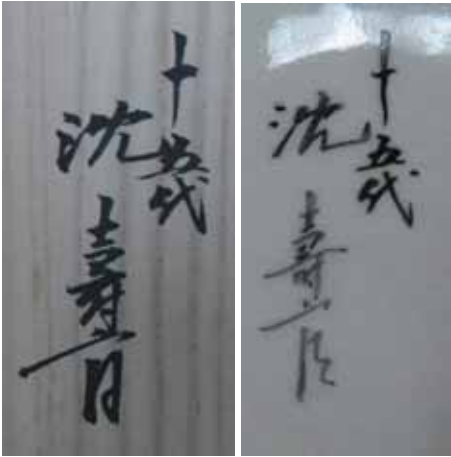 十五代
沈壽官
十五代
沈壽官